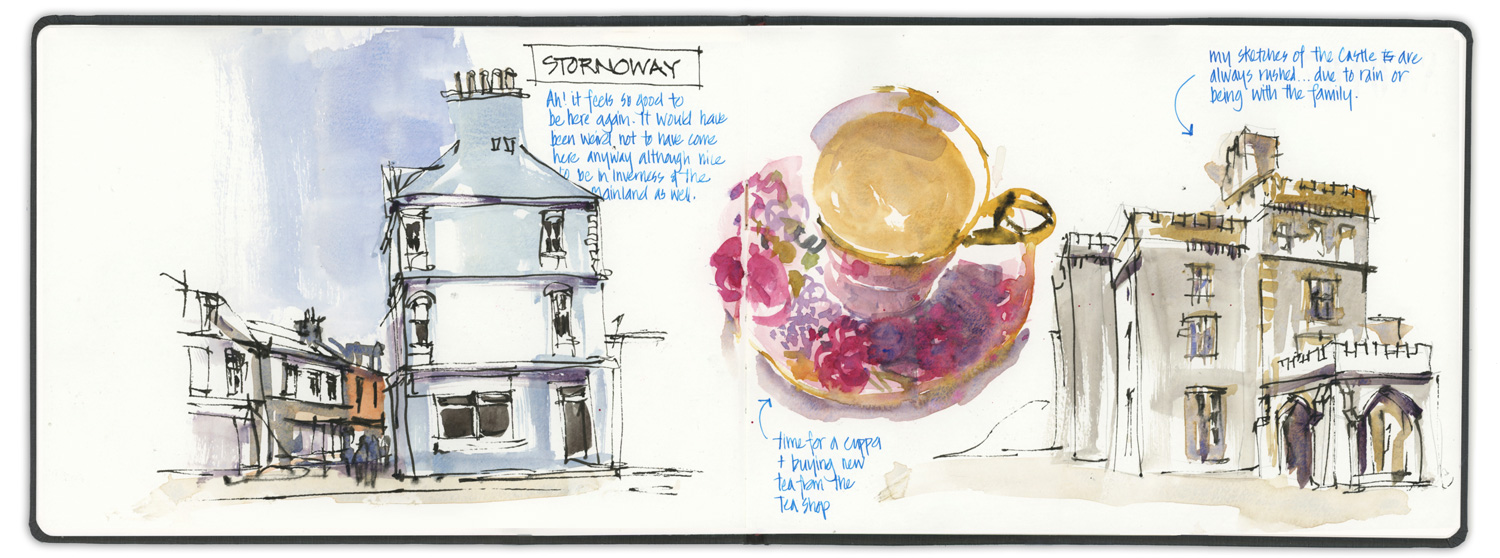 STORNOWAY
Ah! it feels so good to
be here again. It would have
been weird not to have come
here anyway although nice
to be in Inverness & the
mainland as well.
time for a cuppa
+ buying new
tea from the
tea shop
my sketches of the castle are
always rushed... due to rain or
being with the family.